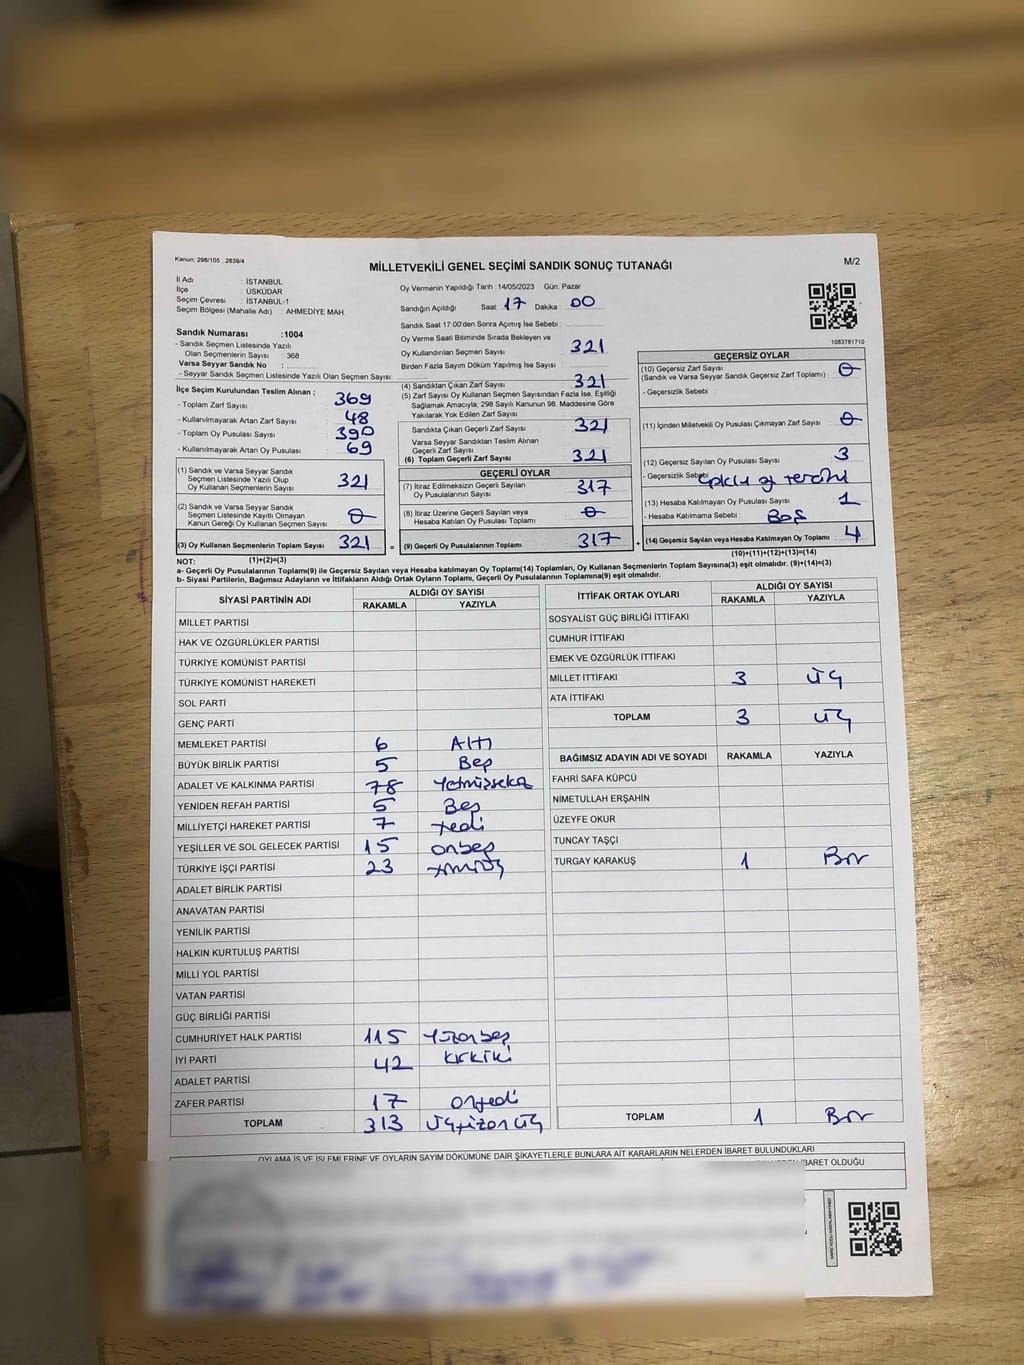 Kanun: 298/105 , 2839/4
MİLLETVEKİLİ GENEL SEÇİMİ SANDIK SONUÇ TUTANAĞI
M/2
İl Adı : İSTANBUL
İlçe : ÜSKÜDAR
Seçim Çevresi : İSTANBUL-1
Seçim Bölgesi (Mahalle Adı) : AHMEDİYE MAH.
Oy Vermenin Yapıldığı Tarih :14/05/2023 Gün: Pazar
Sandığın Açıldığı Saat : 17 Dakika : 00
Sandık Saat 17.00'den Sonra Açımış İse Sebebi :
Sandık Numarası :1004
- Sandık Seçmen Listesinde Yazılı
Olan Seçmenlerin Sayısı : 368
Varsa Seyyar Sandık No :
- Seyyar Sandık Seçmen Listesinde Yazılı Olan Seçmen Sayısı:
Oy Verme Saati Bitiminde Sırada Bekleyen ve
Oy Kullandırılan Seçmen Sayısı : 321
Birden Fazla Sayım Döküm Yapılmış İse Sayısı :
1083781710
İlçe Seçim Kurulundan Teslim Alınan ;
- Toplam Zarf Sayısı : 369
- Kullanılmayarak Artan Zarf Sayısı : 48
- Toplam Oy Pusulası Sayısı : 390
- Kullanılmayarak Artan Oy Pusulası : 69
(1) Sandık ve Varsa Seyyar Sandık
Seçmen Listesinde Yazılı Olup
Oy Kullanan Seçmenlerin Sayısı : 321
(2) Sandık ve Varsa Seyyar Sandık
Seçmen Listesinde Kayıtlı Olmayan
Kanun Gereği Oy Kullanan Seçmen Sayısı : 0
(3) Oy Kullanan Seçmenlerin Toplam Sayısı : 321
(4) Sandıktan Çıkan Zarf Sayısı : 321
(5) Zarf Sayısı Oy Kullanan Seçmen Sayısından Fazla İse, Eşitliği
Sağlamak Amacıyla; 298 Sayılı Kanunun 98. Maddesine Göre
Yakılarak Yok Edilen Zarf Sayısı :
Sandıkta Çıkan Geçerli Zarf Sayısı : 321
Varsa Seyyar Sandıktan Teslim Alınan
Geçerli Zarf Sayısı :
(6) Toplam Geçerli Zarf Sayısı : 321
GEÇERLİ OYLAR
(7) İtiraz Edilmeksizin Geçerli Sayılan
Oy Pusulalarının Sayısı : 317
(8) İtiraz Üzerine Geçerli Sayılan veya
Hesaba Katılan Oy Pusulası Toplamı : 0
(9) Geçerli Oy Pusulalarının Toplamı : 317
GEÇERSİZ OYLAR
(10) Geçersiz Zarf Sayısı : 0
(Sandık ve Varsa Seyyar Sandık Geçersiz Zarf Toplamı)
- Geçersizlik Sebebi :
(11) İçinden Milletvekili Oy Pusulası Çıkmayan Zarf Sayısı : 0
(12) Geçersiz Sayılan Oy Pusulası Sayısı : 3
- Geçersizlik Sebebi
(13) Hesaba Katılmayan Oy Pusulası Sayısı : 1
- Hesaba Katılmama Sebebi : Boş
(14) Geçersiz Sayılan veya Hesaba Katılmayan Oy Toplamı : 4
= +
NOT: (1)+(2)=(3)
(10)+(11)+(12)+(13)=(14)
a- Geçerli Oy Pusulalarının Toplamı(9) ile Geçersiz Sayılan veya Hesaba katılmayan Oy Toplamı(14) Toplamları, Oy Kullanan Seçmenlerin Toplam Sayısına(3) eşit olmalıdır. (9)+(14)=(3)
b- Siyasi Partilerin, Bağımsız Adayların ve İttifakların Aldığı Ortak Oyların Toplamı, Geçerli Oy Pusulalarının Toplamına(9) eşit olmalıdır.
SİYASİ PARTİNİN ADI ALDIĞI OY SAYISI
RAKAMLA YAZIYLA
MİLLET PARTİSİ
HAK VE ÖZGÜRLÜKLER PARTİSİ
TÜRKİYE KOMÜNİST PARTİSİ
TÜRKİYE KOMÜNİST HAREKETİ
SOL PARTİ
GENÇ PARTİ
MEMLEKET PARTİSİ 6 Altı
BÜYÜK BİRLİK PARTİSİ 5 Beş
ADALET VE KALKINMA PARTİSİ 78 Yetmişsekiz
YENİDEN REFAH PARTİSİ 5 Beş
MİLLİYETÇİ HAREKET PARTİSİ 7 Yedi
YEŞİLLER VE SOL GELECEK PARTİSİ 15 onbeş
TÜRKİYE İŞÇİ PARTİSİ 23 Yirmiüç
ADALET BİRLİK PARTİSİ
ANAVATAN PARTİSİ
YENİLİK PARTİSİ
HALKIN KURTULUŞ PARTİSİ
MİLLİ YOL PARTİSİ
VATAN PARTİSİ
GÜÇ BİRLİĞİ PARTİSİ
CUMHURİYET HALK PARTİSİ 115 Yüzonbeş
İYİ PARTİ 42 kırkiki
ADALET PARTİSİ
ZAFER PARTİSİ 17 Onyedi
TOPLAM 313 Üçyüzonüç
İTTİFAK ORTAK OYLARI ALDIĞI OY SAYISI
RAKAMLA YAZIYLA
SOSYALİST GÜÇ BİRLİĞİ İTTİFAKI
CUMHUR İTTİFAKI
EMEK VE ÖZGÜRLÜK İTTİFAKI
MİLLET İTTİFAKI 3 üç
ATA İTTİFAKI
TOPLAM 3 üç
BAĞIMSIZ ADAYIN ADI VE SOYADI RAKAMLA YAZIYLA
FAHRİ SAFA KÜPCÜ
NİMETULLAH ERŞAHİN
ÜZEYFE OKUR
TUNCAY TAŞÇI
TURGAY KARAKUŞ 1 Bir
TOPLAM 1 Bir
OYLAMA İŞ VE İŞLEMLERİNE VE OYLARIN SAYIM DÖKÜMÜNE DAİR ŞİKAYETLERLE BUNLARA AİT KARARLARIN NELERDEN İBARET BULUNDUKLARI
İBARET OLDUĞU